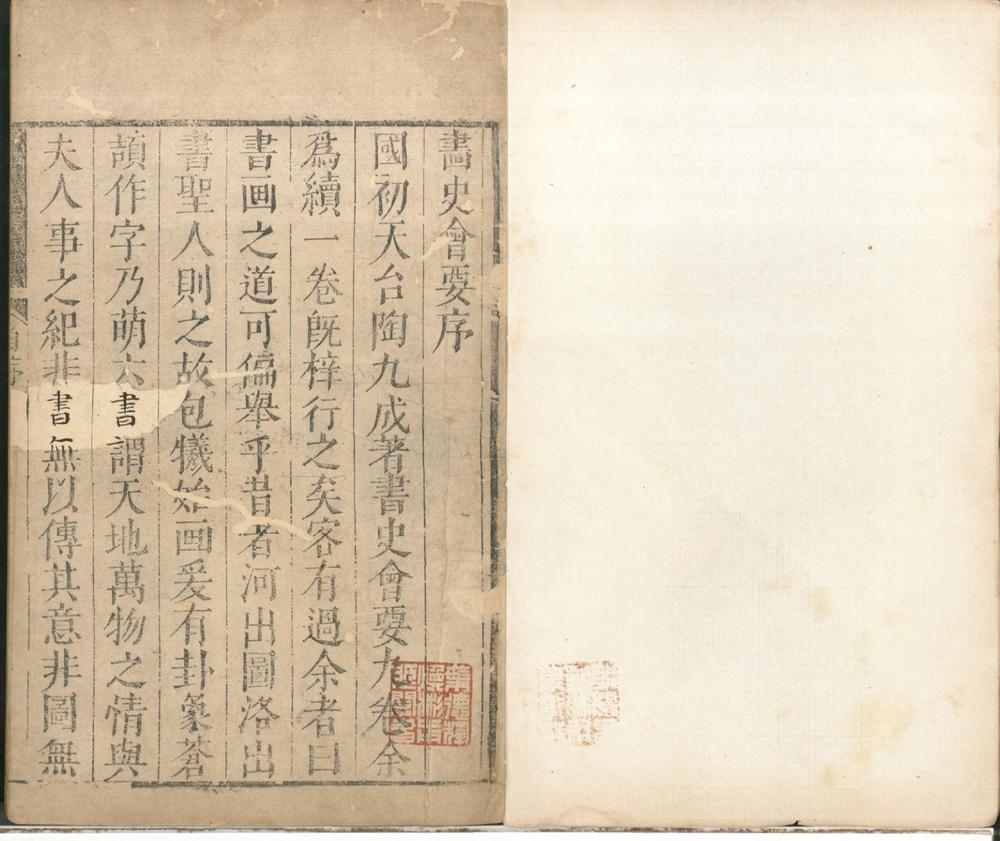 畵史會要序
國初天台陶九成著書史會要九卷余
爲續一卷旣梓行之矣客有過余者曰
書画之道可偏舉乎昔者河出圖洛出
書聖人則之故包犧始画爰有卦象蒼
頡作字乃萌六書謂天地萬物之情與
夫人事之紀非書無以傳其意非圖無